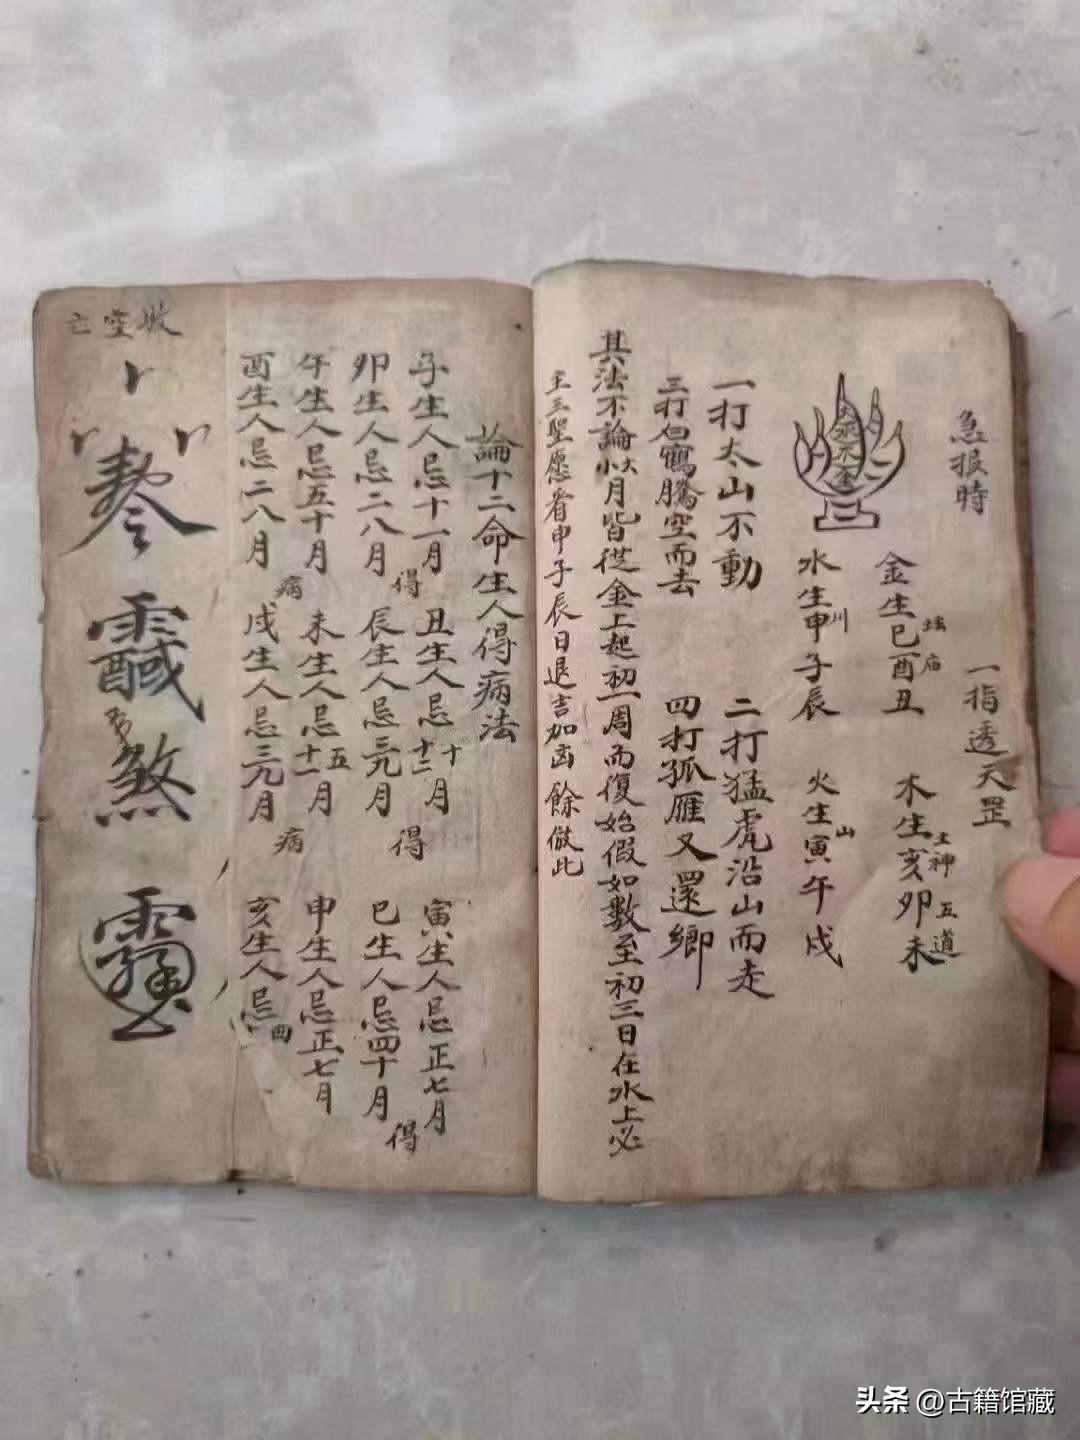 急报時
一指透天罡
金生巳酉丑
庙
木生亥卯未
土神
五道
水生申子辰
川
火生寅午戌
山
火
水
木
金
一打太山不動
二打猛虎沿山而走
三打白鶴騰空而去
四打孤雁又還鄉
其法不論大小月皆從金上起初一周而復始假如數至初三日在水上必
主三聖愿看申子辰日退吉加凶餘倣此
論十二命生人得病法
子生人忌十一月
丑生人忌十十二月
寅生人忌正七月
卯生人忌二八月
得
辰生人忌三九月
得
巳生人忌四十月
得
午生人忌五十月
未生人忌五十一月
申生人忌正七月
酉生人忌二八月
病
戌生人忌三九月
病
亥生人忌四
空亡
煞